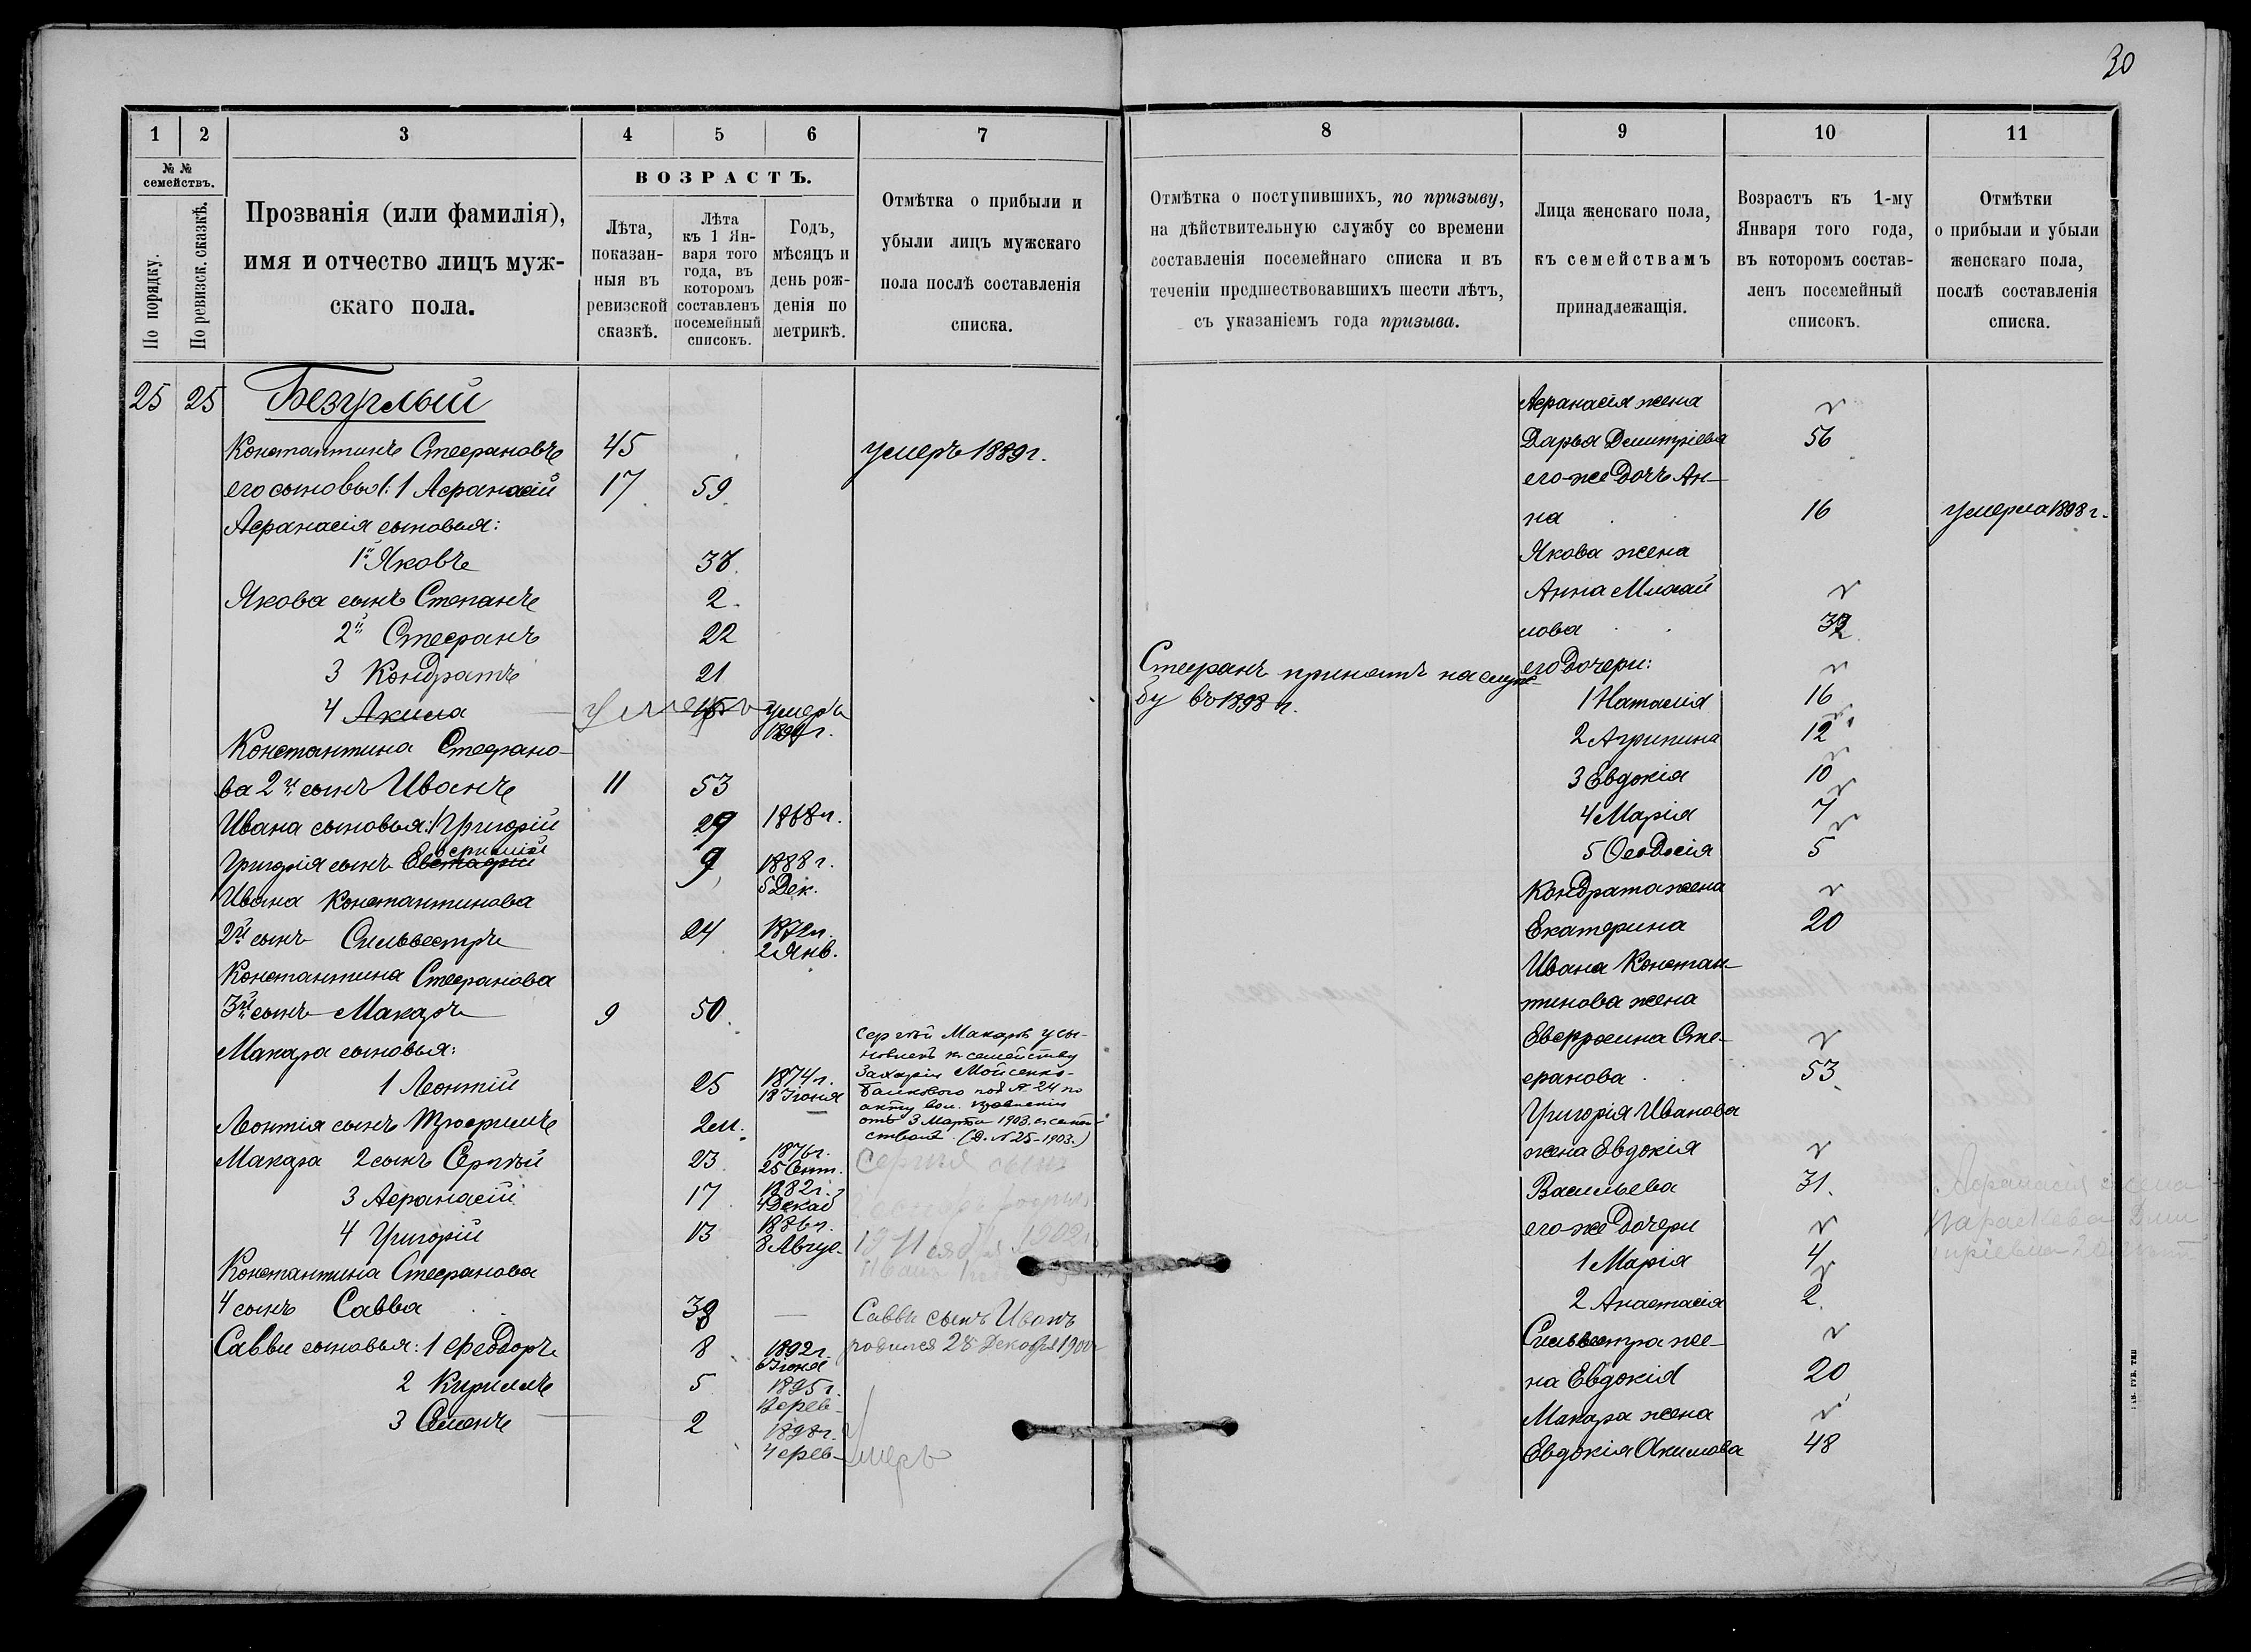 30
1 2 3 4 5 6 7
№ № семействъ.
По порядку.
По ревизск. сказкѣ.
Прозванія (или фамилія),
имя и отчество лицъ муж-
скаго пола.
ВОЗРАСТЪ.
Лѣта,
показан-
ныя въ
ревизской
сказкѣ.
Лѣта
къ 1 Ян-
варя того
года, въ
которомъ
составленъ
посемейный
списокъ.
Годъ,
мѣсяцъ и
день рож-
денія по
метрикѣ.
Отмѣтка о прибыли и
убыли лицъ мужскаго
пола послѣ составленія
списка.
25 25 Безуглый
Константинъ Стефановъ 45 умеръ 1889 г.
его сыновья: 1 Афанасій 17 59
Афанасія сыновья:
1й Яковъ 38
Якова сынъ Степанъ 2
2й Стефанъ 22
3 Кондратъ 21
4 Акила умеръ 15 умеръ
Константина Стефано-
ва 2й сынъ Иванъ 11 53
Ивана сыновья: 1 Григорій 29 1868 г.
Григорія сынъ Евстафій 9 1888 г.
5 Дек.
Ивана Константинова
2й сынъ Сильвестръ 24 1872 г.
2 Янв.
Константина Стефанова
3й сынъ Макаръ 9 50
Макара сыновья:
1 Леонтій 25 1874 г.
18 Іюня
Леонтія сынъ Трофимъ 2 м.
Макара 2 сынъ Сергѣй 23 1876 г.
25 Сент.
3 Афанасій 17 1882 г.
4 Декаб
4 Григорій 13 1886 г.
8 Авгус.
Константина Стефанова
4 сынъ Савва 38 —
Саввы сыновья: 1 Феодоръ 8 1892 г.
Іюня
2 Кириллъ 5 1895 г.
3 Семенъ 2 1898 г.
4 фев
Сергѣй Макаровъ усы-
новленъ къ семейству
Захарія Мойсенко-
подъ № 24 по
акту вол. правленія
отъ 3 Марта 1903.
(Д. № 25-1903.)
Сергія сынъ
1902 г.
Иванъ
Саввы сынъ Иванъ
родился 28 Декабря 1900 г
умеръ
8 9 10 11
Отмѣтка о поступившихъ, по призыву,
на дѣйствительную службу со времени
составленія посемейнаго списка и въ
теченіи предшествовавшихъ шести лѣтъ,
съ указаніемъ года призыва.
Лица женскаго пола,
къ семействамъ
принадлежащія.
Возрастъ къ 1-му
Января того года,
въ которомъ состав-
ленъ посемейный
списокъ.
Отмѣтки
о прибыли и убыли
женскаго пола,
послѣ составленія
списка.
Стефанъ принятъ на служ-
бу въ 1898 г.
Афанасія жена
Дарья Дмитріева 56
его же дочь Ан-
на 16 умерла 1898 г.
Якова жена
Анна Михай
лова 32
его дочери:
1 Наталія 16
2 Агрипина 12
3 Евдокія 10
4 Марія 7
5 Феодосія 5
Кондрата жена
Екатерина 20
Ивана Констан-
тинова жена
Евфросина Сте-
фанова 53
Григорія Иванова
жена Евдокія
Васильева 31.
его же дочери
1 Марія 4
2 Анастасія 2
Сильвестра же-
на Евдокія 20
Макара жена
Евдокія Акимова 48
Афанасія жена
Параскева Дми
тріевна